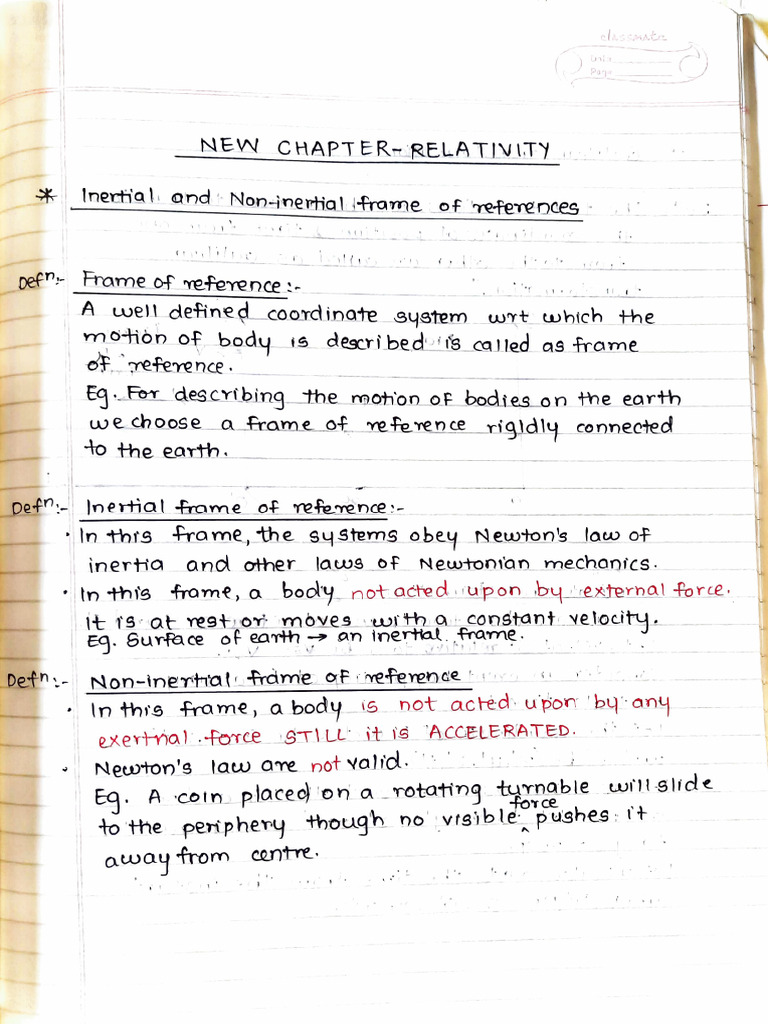 classmate
Date
Page
NEW CHAPTER-RELATIVITY
* Inertial and Non-inertial frame of references
Defn:- Frame of reference:-
A well defined coordinate system wrt which the
motion of body is described is called as frame
of reference.
Eg. For describing the motion of bodies on the earth
we choose a frame of reference rigldly connected
to the earth.
Defn:- Inertial frame of reference:-
• In this frame, the systems obey Newton's law of
inertia and other laws of Newtonian mechanics.
• In this frame, a body not acted upon by external force.
it is at rest or moves with a constant velocity.
Eg. Surface of earth → an inertial frame.
Defn:- Non-inertial frame of reference
• In this frame, a body is not acted upon by any
exertnal force STILL it is ACCELERATED.
• Newton's law are not valid.
Eg. A coin placed on a rotating turnable will slide
to the periphery though no visible force pushes it
away from centre.